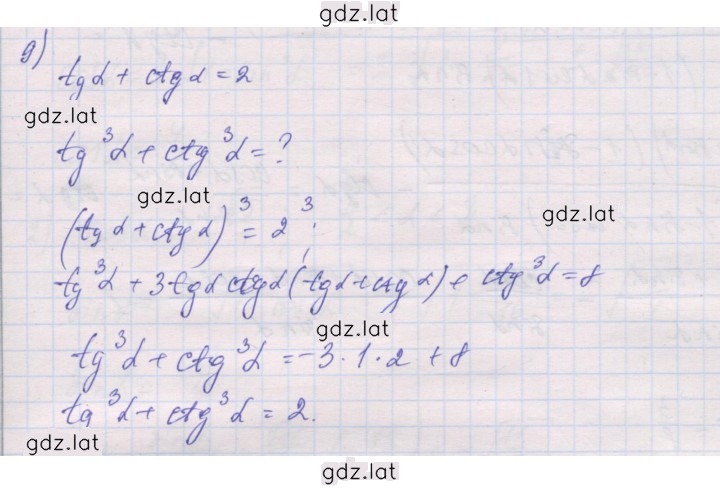 gdz.lat
д)
tgα + ctgα = 2
gdz.lat
tg³α + ctg³α = ?
gdz.lat
(tgα + ctgα)³ = 2³;
gdz.lat
tg³α + 3tgα ctgα (tgα + ctgα) + ctg³α = 8
gdz.lat
tg³α + ctg³α = -3·1·2 + 8
tg³α + ctg³α = 2.
gdz.lat
gdz.lat
gdz.lat